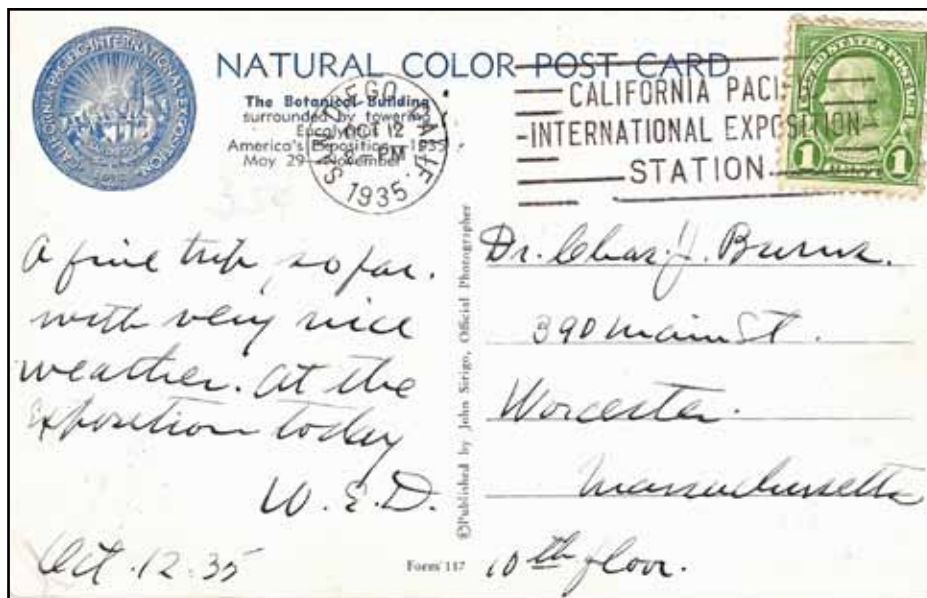 CALIFORNIA PACIFIC INTERNATIONAL EXPOSITION
NATURAL COLOR POST CARD
The Botanical Building
surrounded by towering
Eucalyptus
America's Exposition—1935
May 29—November
SAN DIEGO, CALIF.
OCT 12
PM
1935
CALIFORNIA PACIFIC
INTERNATIONAL EXPOSITION
STATION
UNITED STATES POSTAGE
1 1
A fine trip, so far.
with very nice
weather. At the
Exposition today
W.E.D.
Oct. 12. 35
©Published by John Sirigo, Official Photographer
Form 117
Dr. Chas. J. Burns.
390 Main St.
Worcester.
Massachusetts
10th floor.